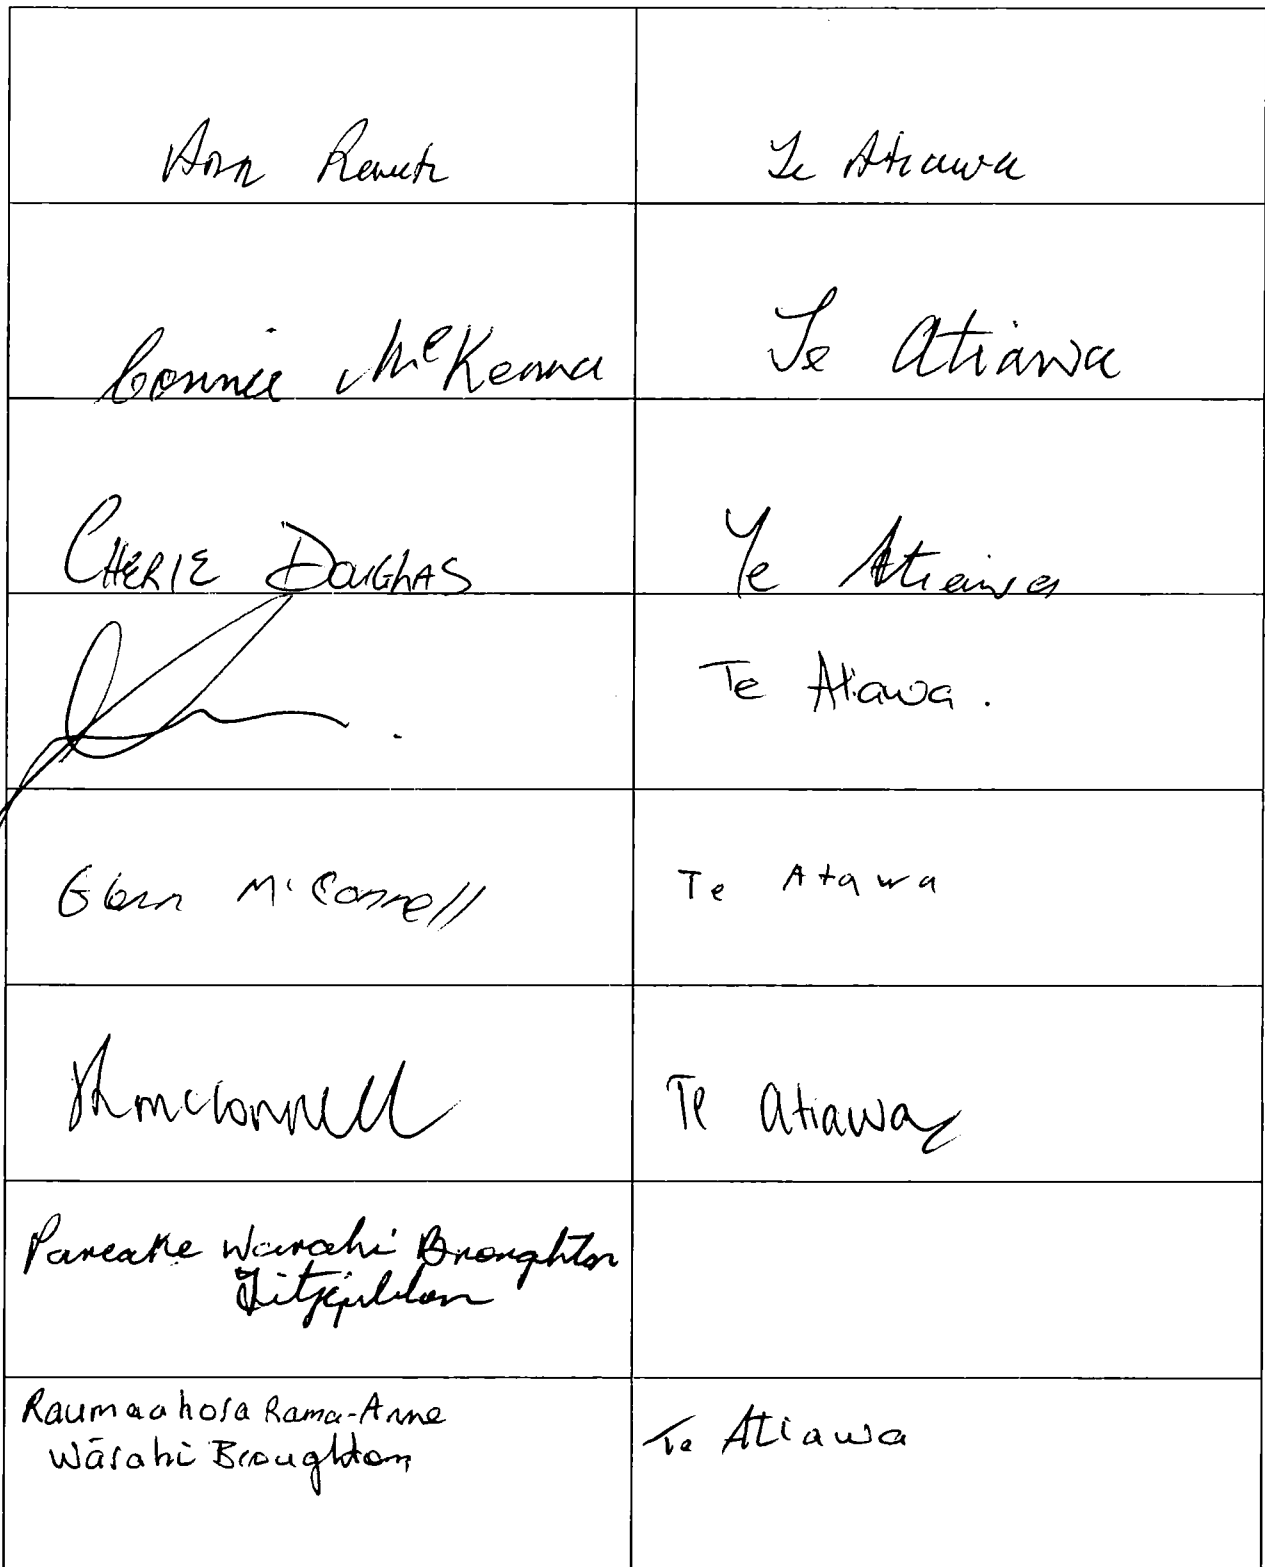 Ann Te Atiawa
Connie McKenna Te Atiawa
CHERIE DOUGLAS Te Atiawa
Te Atiawa.
Glenn McConnell Te Atawa
McConnell Te Atiawa
Pareake Warahi Broughton
Raumaahora Rama-Anne
Wārahi Broughton Te Atiawa